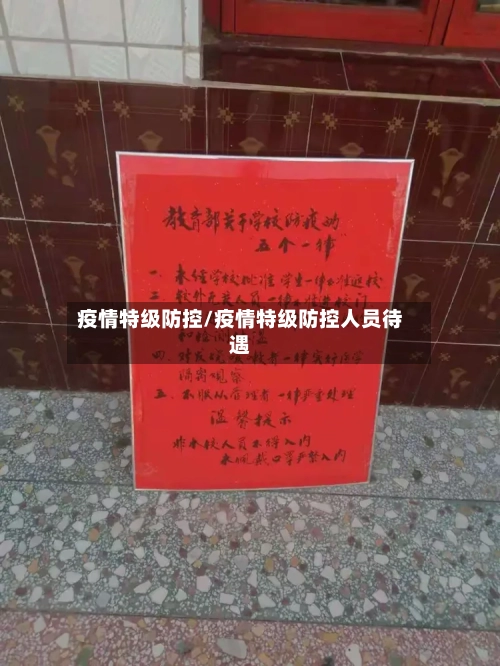 教育部关于学校防疫的
五个一律
一、未经学校批准 学生一律不准返校
二、校外无关人员一律不准
疫情特级防控/疫情特级防控人员待
遇
四、对发现 者一律实行医学
隔离观察
五、不服从管理者一律严肃处理
温馨提示
非本校人员不得入内
未佩戴口罩严禁入内